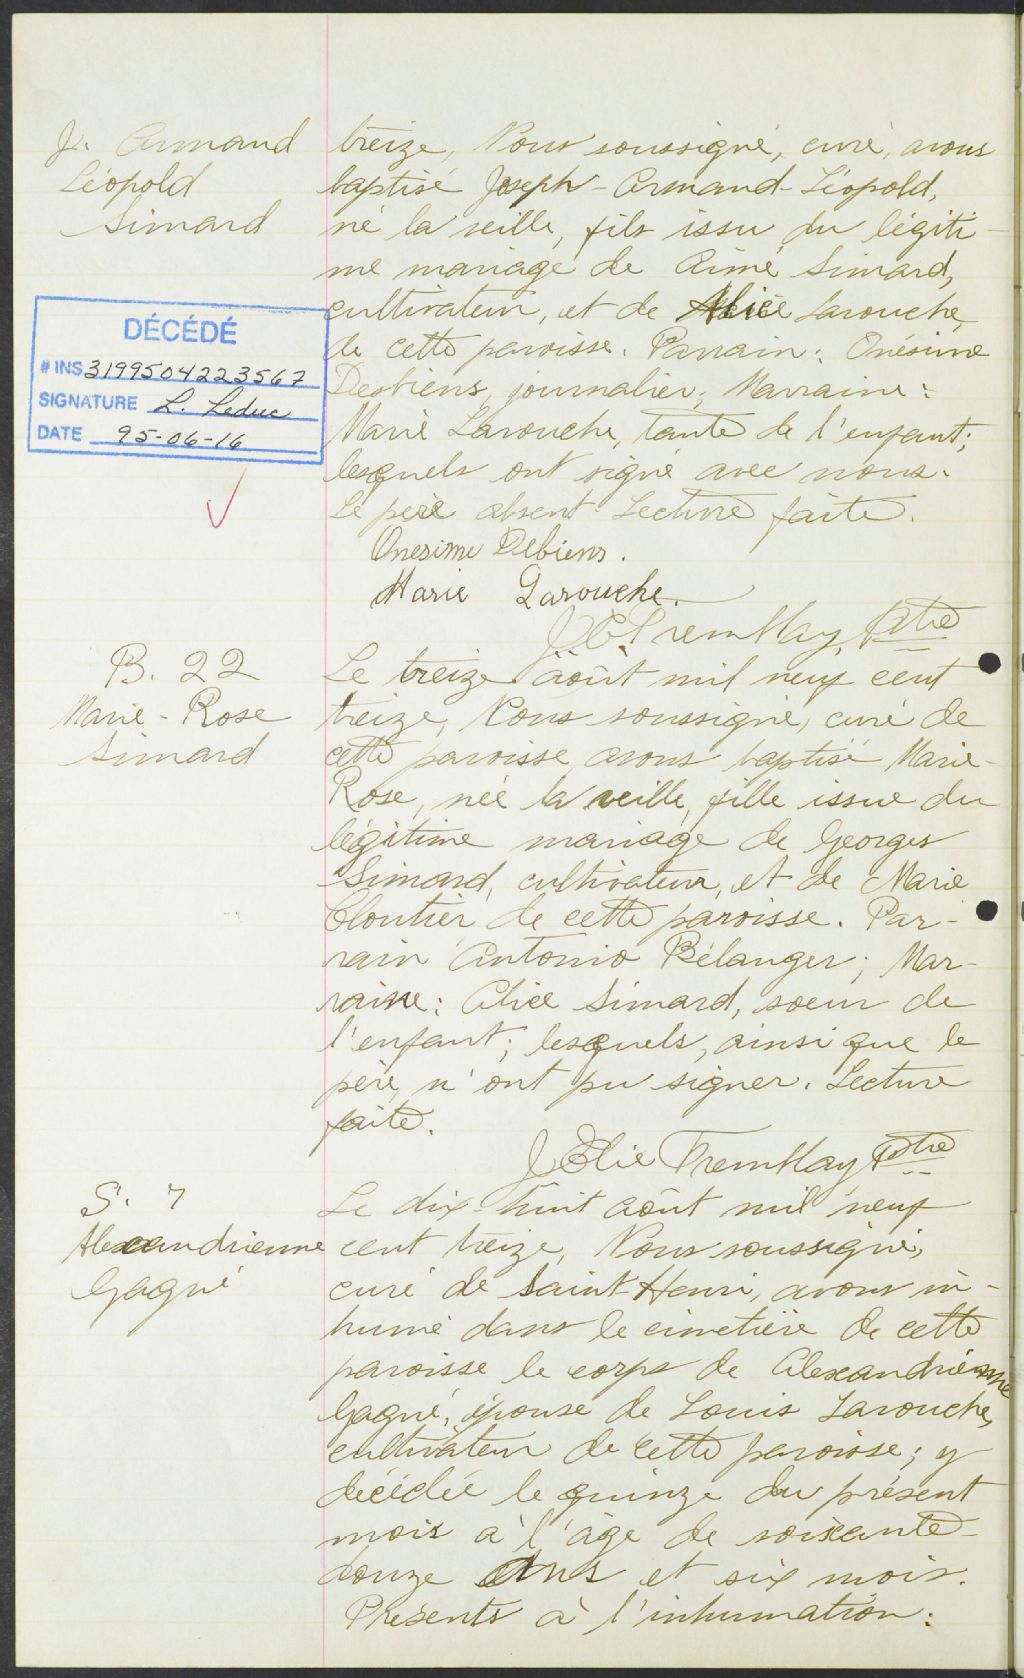 J. Armand
Léopold
Simard
treize, Nous soussigné, curé, avons
baptisé Joseph-Armand-Léopold,
né la veille, fils issu du légiti-
me mariage de Aimé Simard,
cultivateur, et de Alice Larouche
de cette paroisse. Parrain: Onésime
Desbiens, journalier; Marraine:
Marie Larouche, tante de l'enfant;
lesquels ont signé avec nous.
Le père absent. Lecture faite.
DÉCÉDÉ
# INS 3199504223567
SIGNATURE L. Leduc
DATE 95-06-16
Onesime Debiens.
Marie Larouche.
J. E. Tremblay, Ptre
B. 22
Marie-Rose
Simard
Le treize août mil neuf cent
treize, Nous soussigné, curé de
cette paroisse, avons baptisé Marie-
Rose, née la veille, fille issue du
légitime mariage de Georges
Simard, cultivateur, et de Marie
Cloutier de cette paroisse. Par-
rain Antonio Bélanger; Mar-
raine: Alice Simard, soeur de
l'enfant; lesquels, ainsi que le
père, n'ont pu signer. Lecture
faite.
J. Elie Tremblay, Ptre
S. 7
Alexandrienne
Gagné
Le dix huit août mil neuf
cent treize, Nous soussigné,
curé de Saint-Henri, avons in-
humé dans le cimetière de cette
paroisse le corps de Alexandrienne
Gagné, épouse de Louis Larouche,
cultivateur de cette paroisse; y
décédée le quinze du présent
mois à l'âge de soixante-
douze ans et six mois.
Présents à l'inhumation: